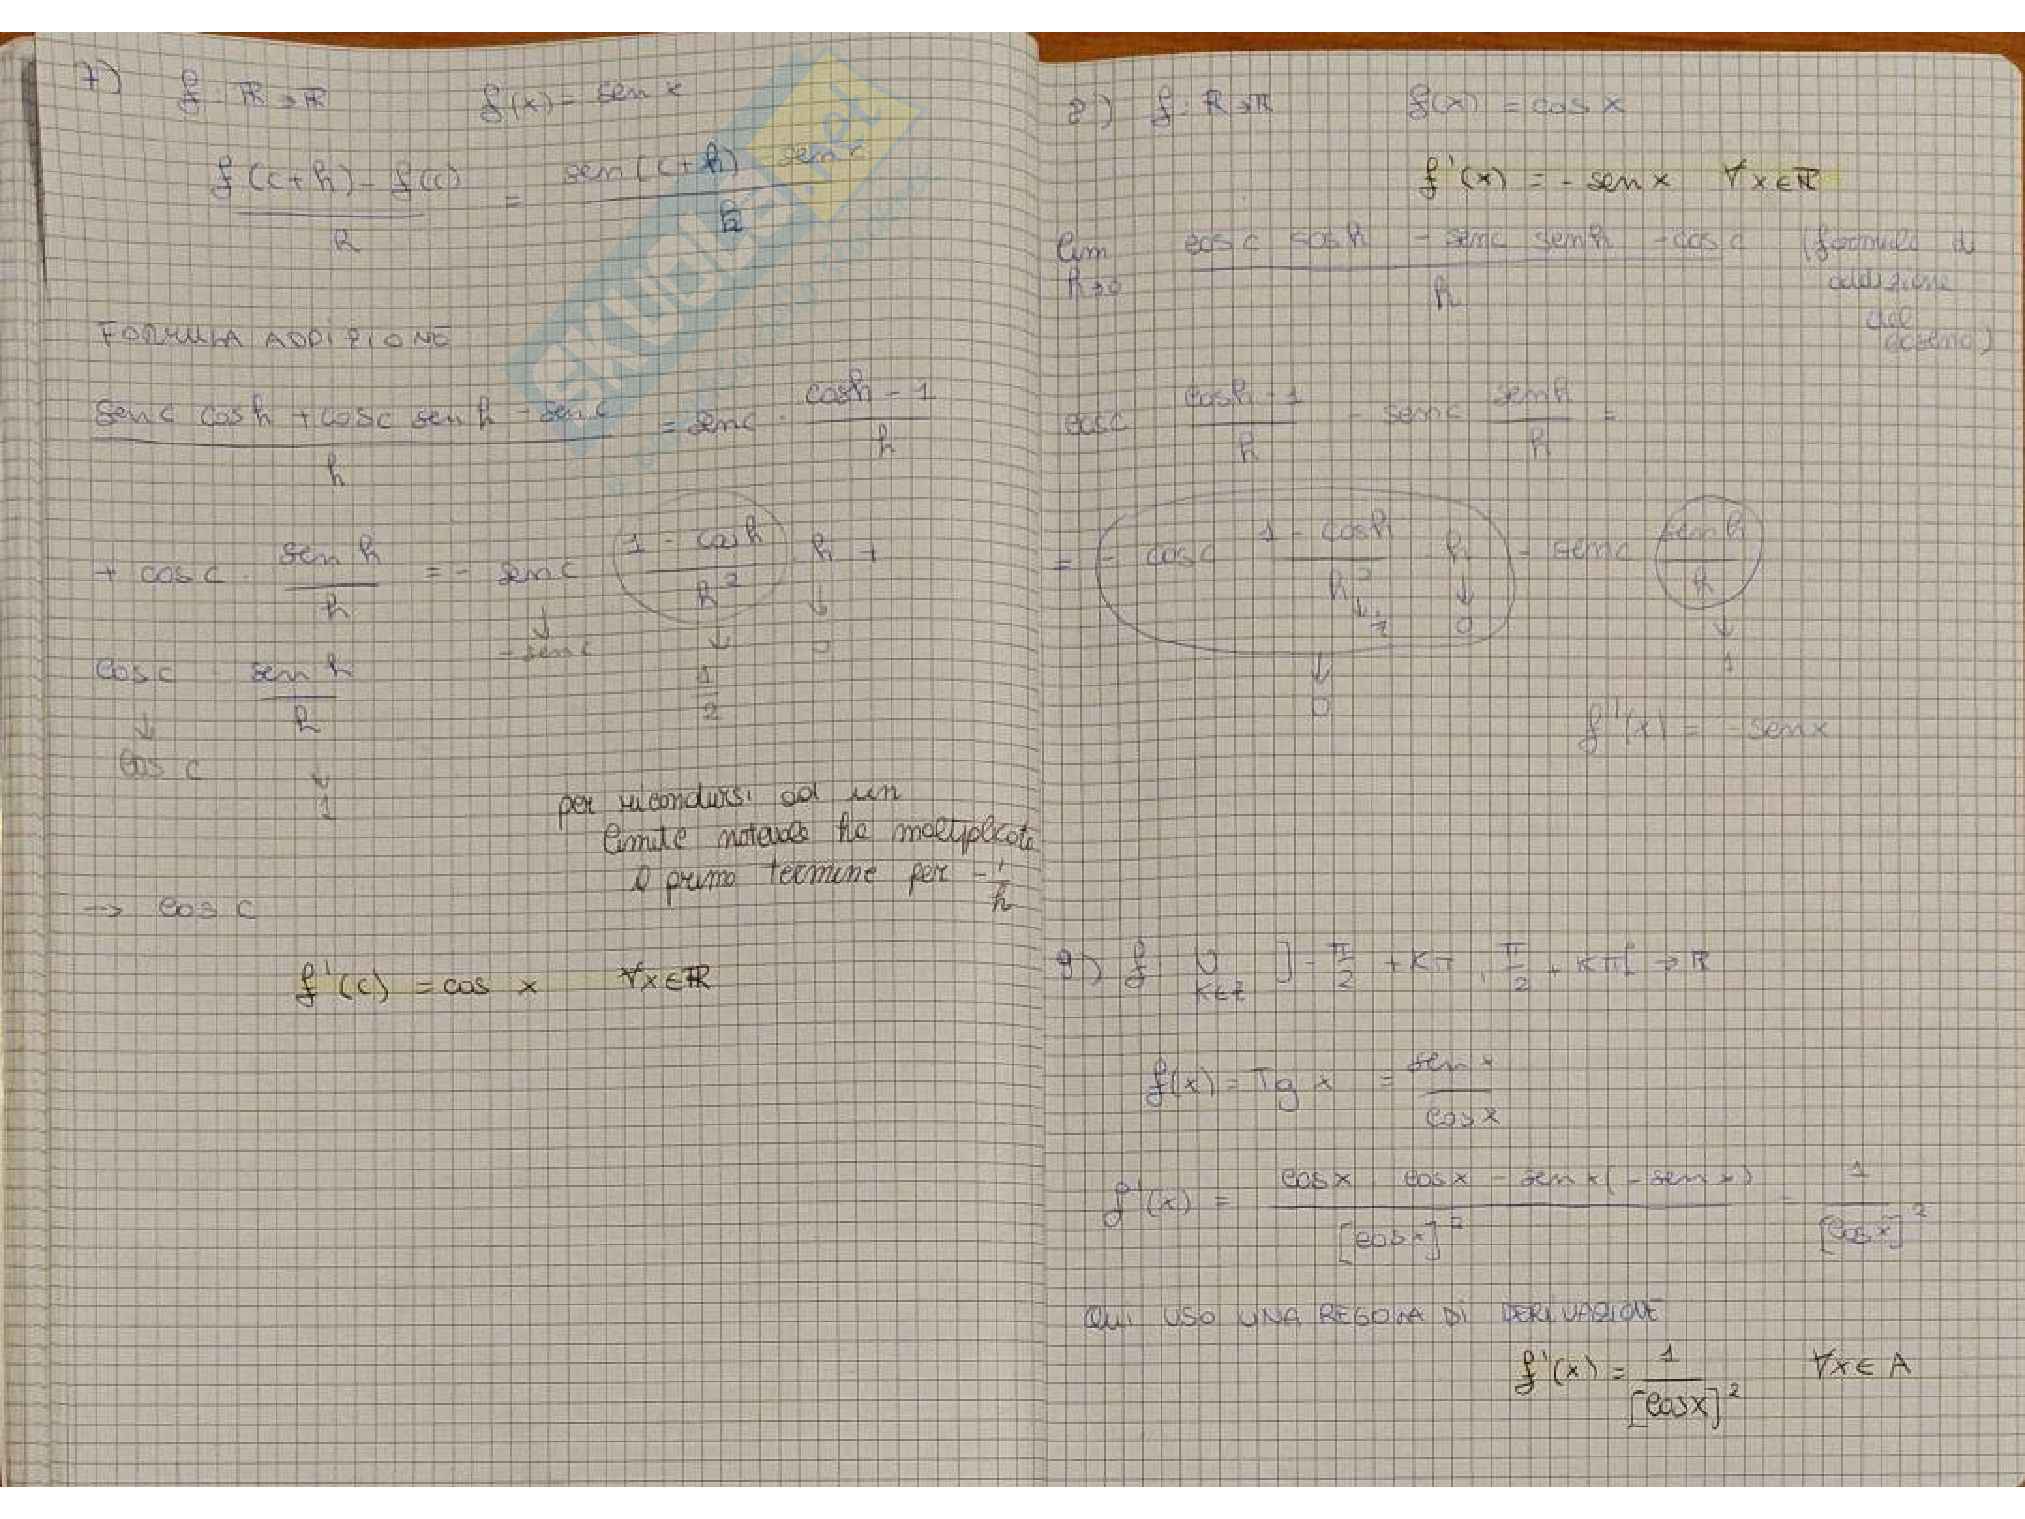 7) f: ℝ→ℝ f(x) = sen x
f(c+h) - f(c) / h = sen(c+h) - sen c / h
FORMULA ADDIZIONE
sen c cos h + cos c sen h - sen c / h = sen c · cos h - 1 / h
+ cos c · sen h / h = - sen c · 1 - cos h / h² · h +
↓ - sen c ↓ 1/2 ↓ 0
cos c · sen h / h
↓ cos c ↓ 1
per ricondursi ad un
limite notevole ho moltiplicato
il primo termine per - 1/h
→ cos c
f'(c) = cos x ∀x∈ℝ
8) f: ℝ→ℝ f(x) = cos x
f'(x) = - sen x ∀x∈ℝ
lim h→0 cos c cos h - sen c sen h - cos c / h (formula di
addizione
del
coseno)
cos c cos h - 1 / h - sen c sen h / h =
= - cos c 1 - cos h / h² h - sen c sen h / h
↓ 1/2 ↓ 0 ↓ 1
↓ 0
f'(x) = - sen x
9) f: ∪ k∈ℤ ]-π/2 + kπ, π/2 + kπ[ → ℝ
f(x) = Tg x = sen x / cos x
f'(x) = cos x · cos x - sen x (- sen x) / [cos x]² = 1 / [cos x]²
QUI USO UNA REGOLA DI DERIVAZIONE
f'(x) = 1 / [cos x]² ∀x∈A
SKUOLA.net